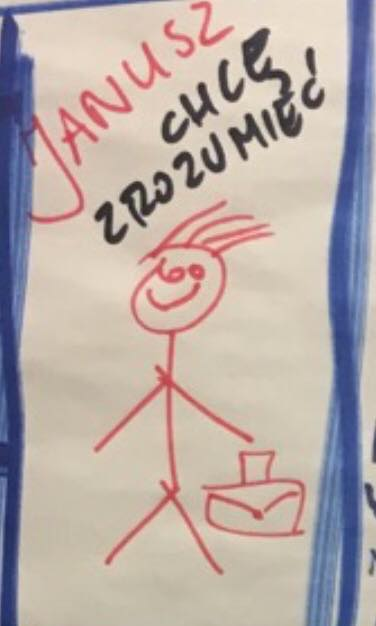 JANUSZ
CHCĘ
ZROZUMIEĆ